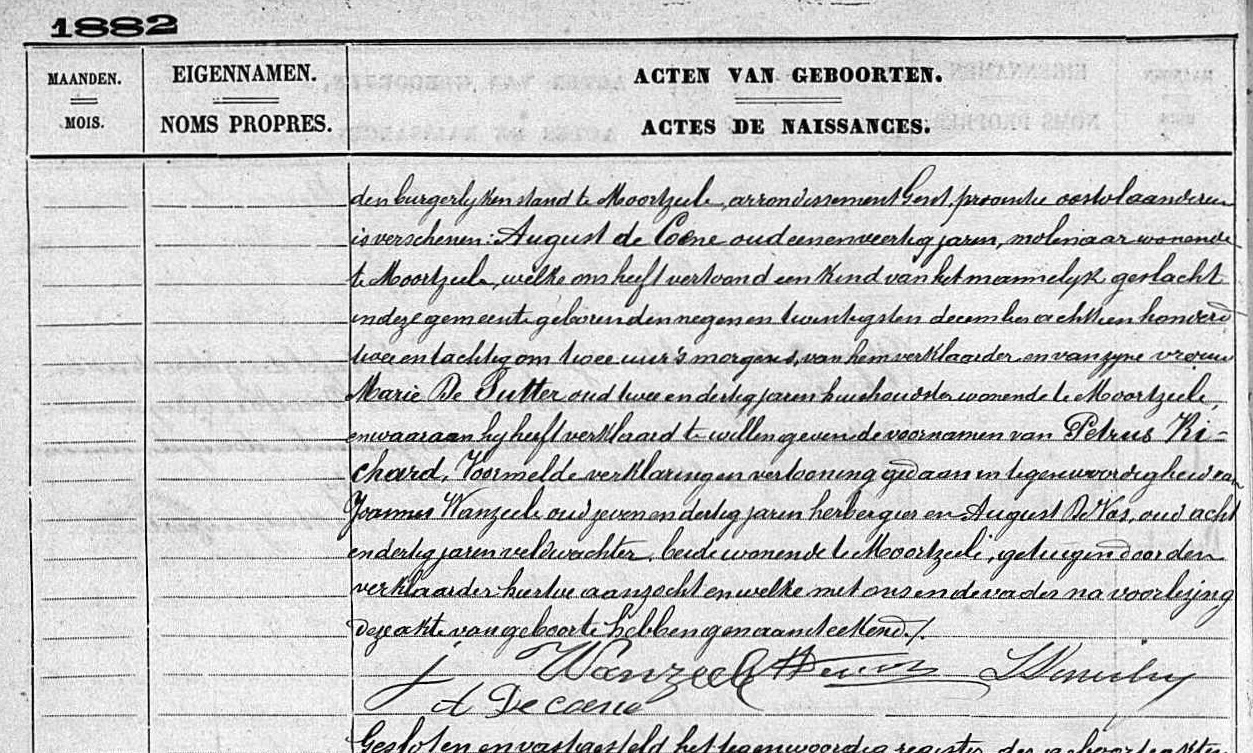 1882
MAANDEN.
MOIS.
EIGENNAMEN.
NOMS PROPRES.
ACTEN VAN GEBOORTEN.
ACTES DE NAISSANCES.
den burgerlyken stand te Moortzeele, arrondissement Gent, provintie oostvlaanderen
is verschenen: August de Coene oud eenenveertig jaren, molenaar wonende
te Moortzeele, welke ons heeft vertoond een kind van het mannelyk geslacht
in deze gemeente geboren den negen en twintigsten december achttien honderd
twee en tachtig om twee uur 's morgens, van hem verklaarder en van zyne vrouw
Marie De Sutter oud twee en dertig jaren huishoudster wonende te Moortzeele,
en waaraan hy heeft verklaard te willen geven de voornamen van Petrus Ri-
chard, Voormelde verklaring en vertooning gedaan in tegenwoordigheid van
Joannes Wanzeele oud zeven en dertig jaren herbergier en August De Vos, oud acht
en dertig jaren veldwachter, beide wonende te Moortzeele, getuigen door den
verklaarder hiertoe aanzocht en welke met ons en de vader na voorlezing
deze akte van geboorte hebben genaamteekend./.
j Wanzeele
A De coene
Gesloten en vastgesteld het tegenwoordig register der geboorte akten